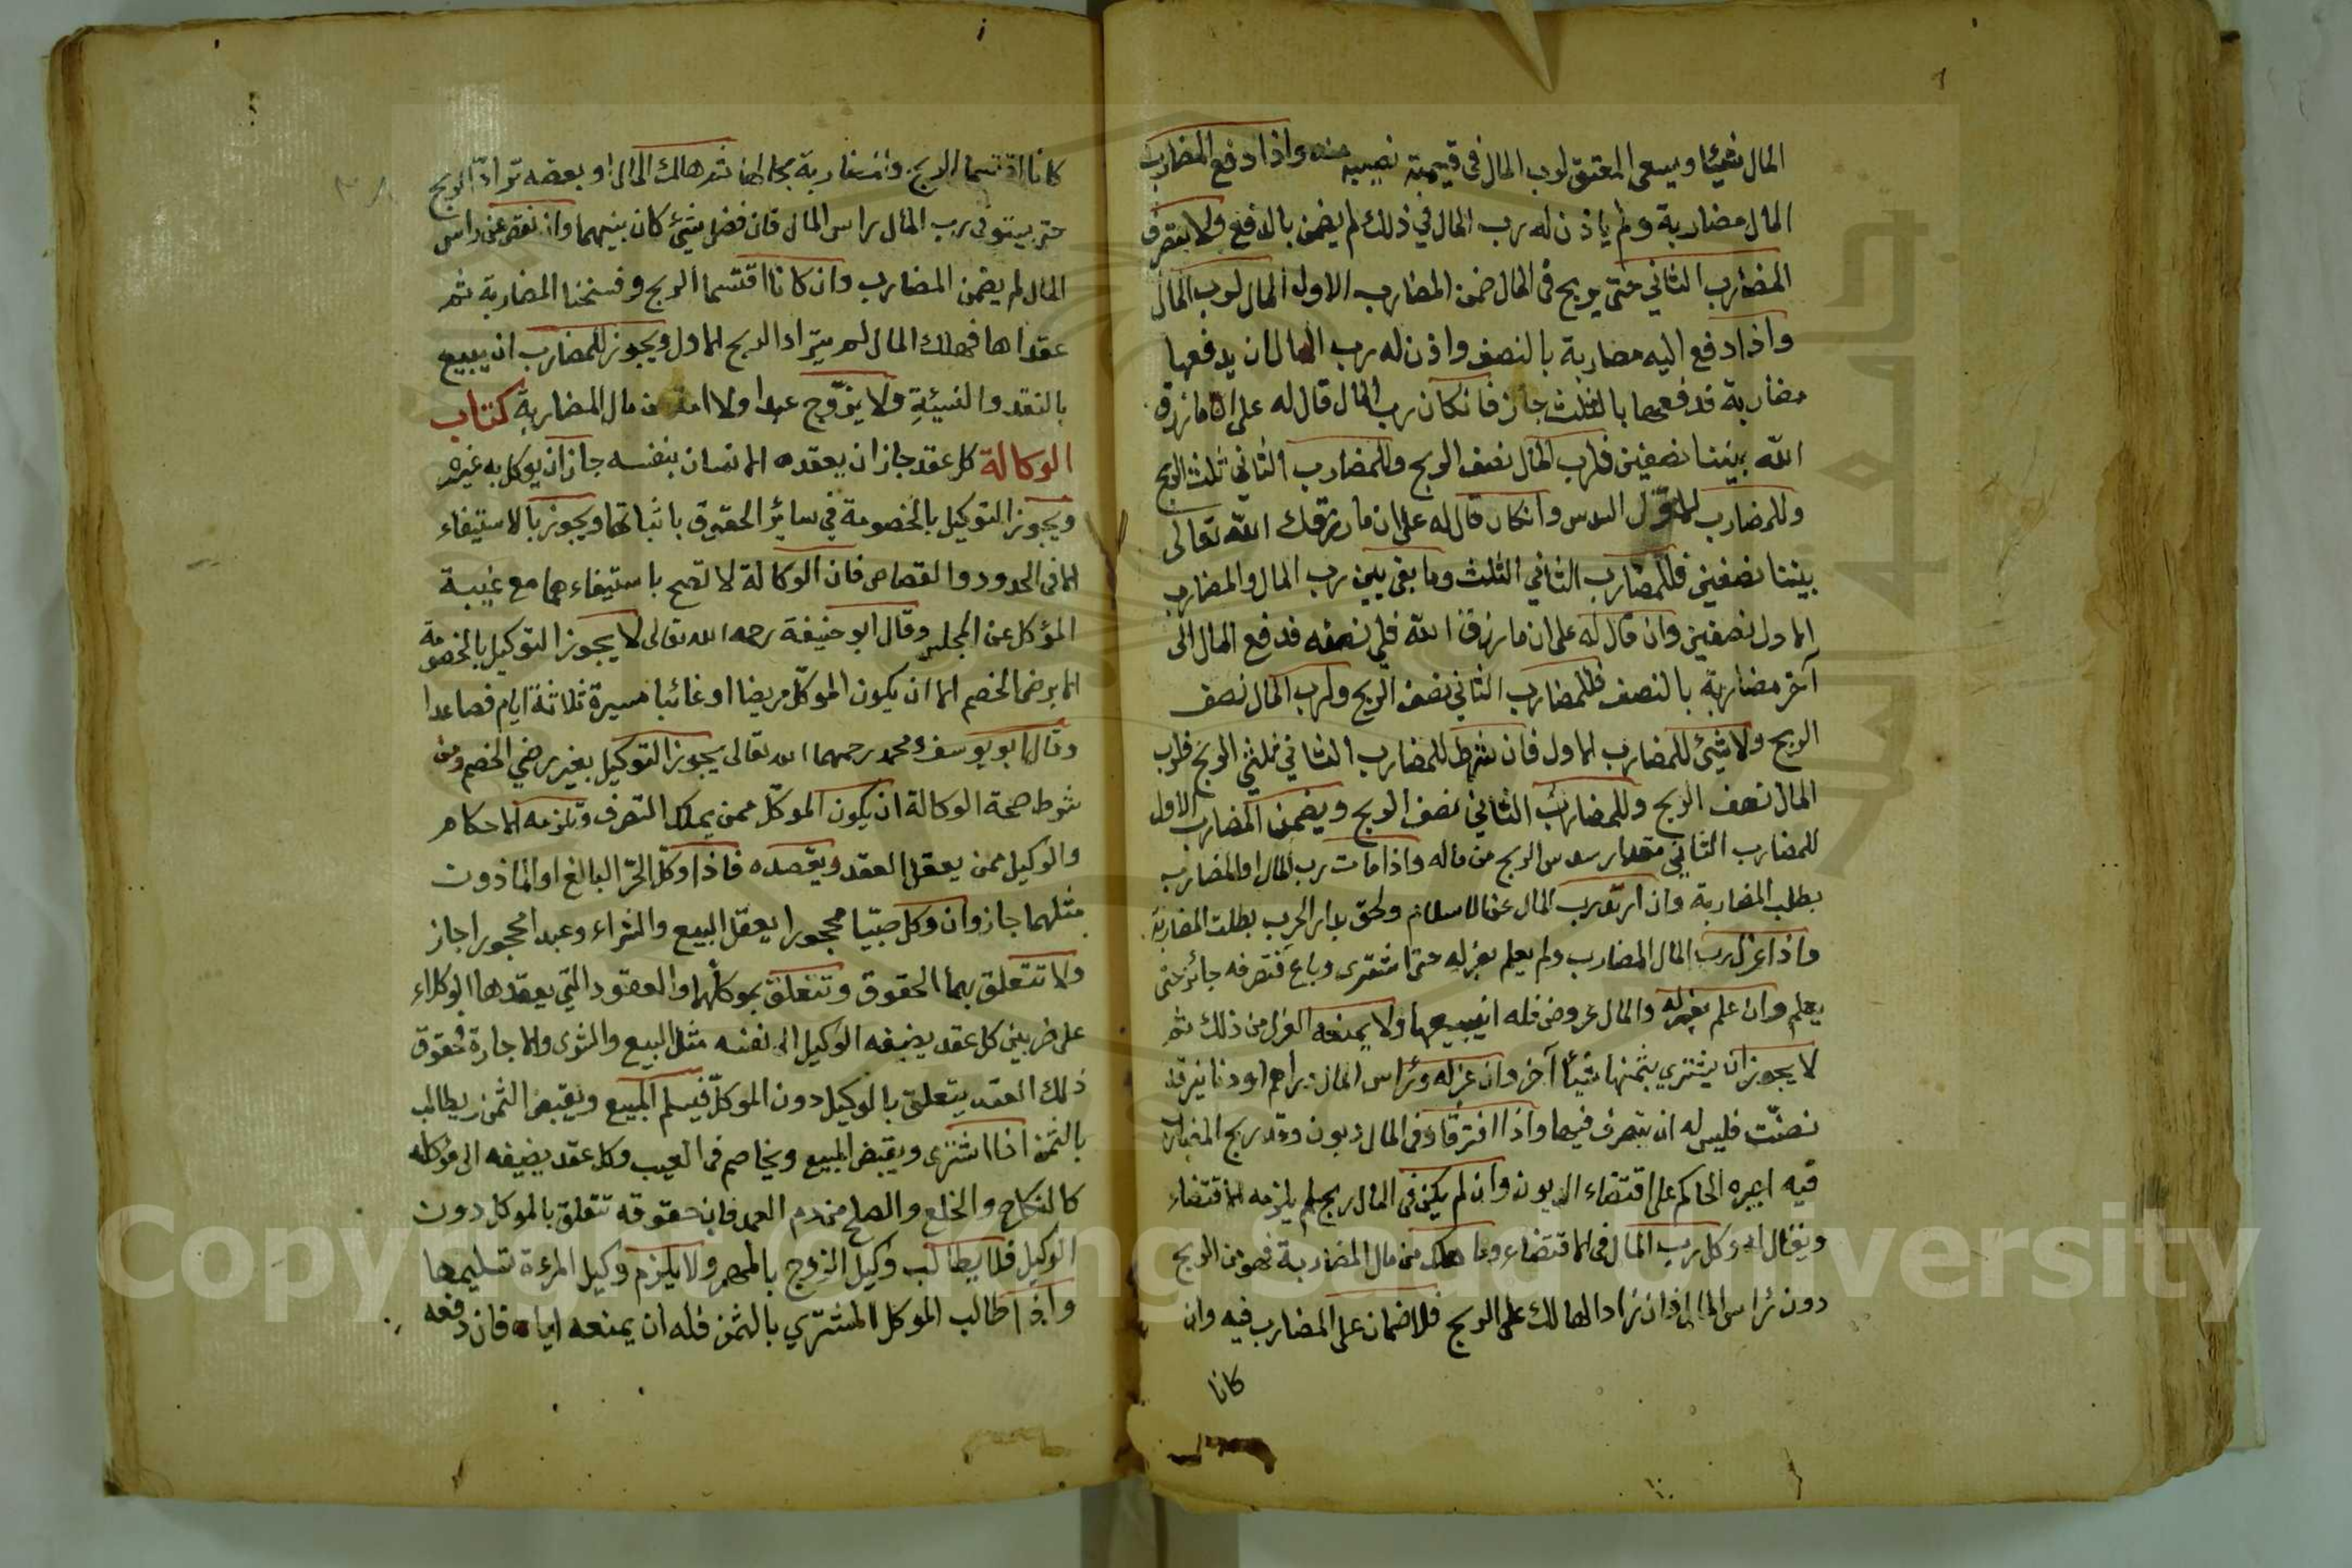 المال شيئا ويسعى المعتق لرب المال فى قيمة نصيبه منه واذا دفع المضارب
المال مضاربة ولم ياذن له رب المال في ذلك لم يضمن بالدفع ولا بتصرف
المضارب الثاني حتى يربح فى المال ضمن المضارب الاول المال لرب المال
واذا دفع اليه مضاربة بالنصف واذن له رب المال ان يدفعها
مضاربة فدفعها بالثلث جاز فان كان رب المال قال له على ان ما رزق
الله بيننا نصفين فلرب المال نصف الربح وللمضارب الثاني ثلث الربح
وللمضارب الاول السدس وان كان قال له على ان ما رزقك الله تعالى
بيننا نصفين فللمضارب الثاني الثلث وما بقى بين رب المال والمضارب
الاول نصفين وان قال له على ان ما رزق الله فلى نصفه فدفع المال الى
آخر مضاربة بالنصف فللمضارب الثاني نصف الربح ولرب المال نصف
الربح ولا شيئ للمضارب الاول فان شرط للمضارب الثاني ثلثي الربح فلرب
المال نصف الربح وللمضارب الثاني نصف الربح ويضمن المضارب الاول
للمضارب الثاني مقدار سدس الربح من ماله واذا مات رب المال او المضارب
بطلب المضاربة وان ارتد رب المال عن الاسلام ولحق بدار الحرب بطلت المضاربة
واذا عزل رب المال المضارب ولم يعلم بعزله حتى اشترى وباع فتصرفه جائز حتى
يعلم وان علم بعزله والمال عروض فله ان يبيعها ولا يمنعه العزل من ذلك ثم
لا يجوز ان يشتري بثمنها شيئا آخر وان عزله ورأس المال دراهم او دنانير قد
نضّت فليس له ان يتصرف فيها واذا افترقا وفى المال ديون وقد ربح المضارب
فيه اجبره الحاكم على اقتضاء الديون وان لم يكن فى المال ربح لم يلزمه الاقتضاء
ويقال له وكل رب المال فى الاقتضاء وما هلك من مال المضاربة فهو من الربح
دون رأس المال فان زاد الهالك على الربح فلا ضمان على المضارب فيه وان
كانا
كانا اقتسما الربح والمضاربة بحالها ثم هلك المال او بعضه ترادّ الربح
حتى يستوفى رب المال راس المال فان فضل شيئ كان بينهما وان نقص عن راس
المال لم يضمن المضارب وان كانا اقتسما الربح وفسخنا المضاربة ثم
عقداها فهلك المال لم يتراد الربح الاول ويجوز للمضارب ان يبيع
بالنقد والنسيئةِ ولا يزوّج عبدا ولا امة من مال المضاربة كتاب
الوكالة كل عقد جاز ان يعقده الانسان بنفسه جاز ان يوكل به غيره
ويجوز التوكيل بالخصومة في سائر الحقوق باثباتها ويجوز بالاستيفاء
الا فى الحدود والقصاص فان الوكالة لا تصح باستيفاءهما مع غيبة
المؤكل عن المجلس وقال ابو حنيفة رحمه الله تعالى لا يجوز التوكيل بالخصومة
الا برضا الخصم الا ان يكون الموكّل مريضا او غائبا مسيرة ثلاثة ايام فصاعدا
وقال ابو يوسف ومحمد رحمهما الله تعالى يجوز التوكيل بغير رضي الخصم ومن
شرط صحة الوكالة ان يكون الموكّل ممن يملك التصرف وتلزمه الاحكام
والوكيل ممن يعقل العقد ويقصده فاذا وكّل الحرّ البالغ او الماذون
مثلهما جاز وان وكل صبيّا محجورا يعقل البيع والشراء وعبدا محجورا جاز
ولا تتعلق بهما الحقوق وتتعلق بموكلهما والعقود التي يعقدها الوكلاء
على ضربين كل عقد يضيفه الوكيل الى نفسه مثل البيع والشرى والاجارة فحقوق
ذلك العقد يتعلق بالوكيل دون الموكلّ فيسلم المبيع ويقبض الثمن ويطالب
بالثمن اذا اشترى ويقبض المبيع ويخاصم فى العيب وكل عقد يضيفه الى مؤكله
كالنكاح والخلع والصلح من دم العمد فان حقوقه تتعلق بالموكل دون
الوكيل فلا يطالب وكيل الزوج بالمهر ولا يلزم وكيل المرءة تسليمها
واذا طالب الموكل المشتري بالثمن فله ان يمنعه اياه فان دفعه
Copyright © King Saud University